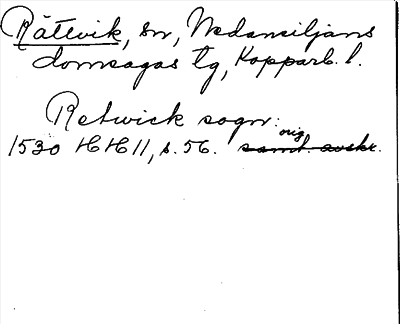 Rättvik, sn, Nedansiljans
domsagas tg, Kopparb. l.
Retwick sogn:
orig.
1530 HH 11, s. 56. samt. avskr.